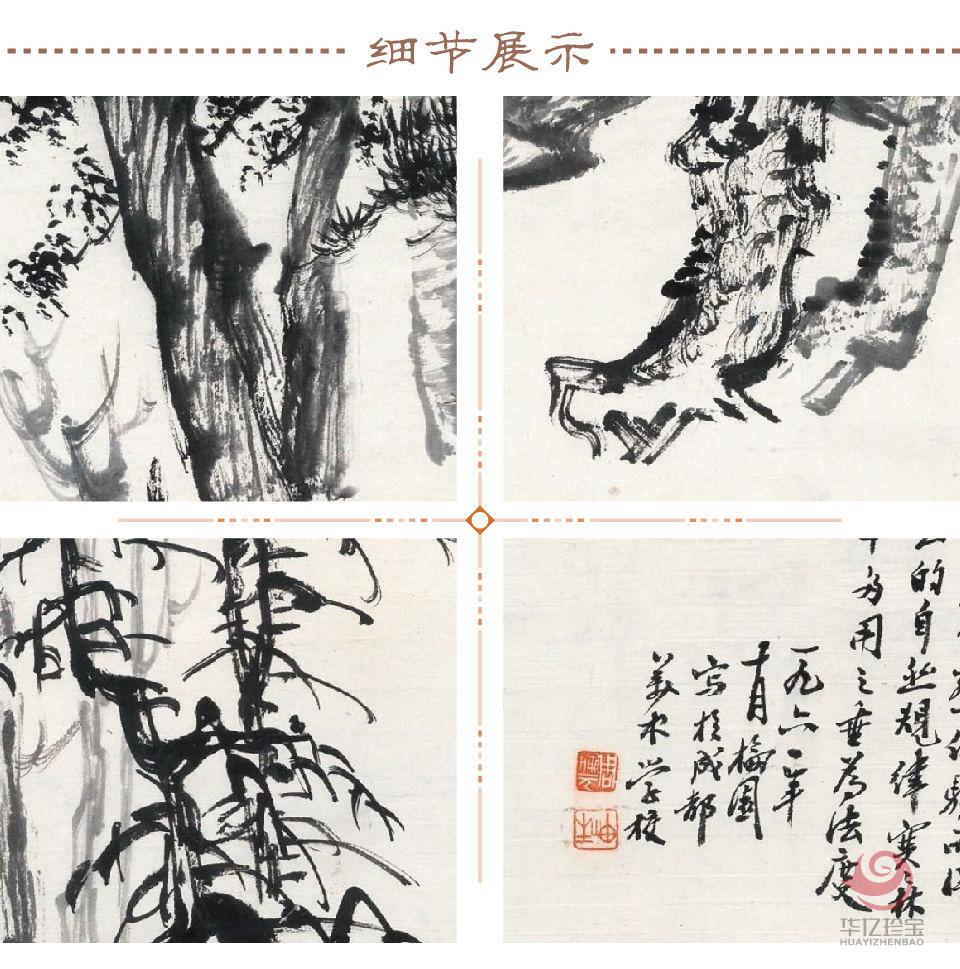 细节展示
的自然規律寒林
多用之垂為法度
一九六一年
十月梅園
写於成都
美术学校
华亿珍宝
HUAYIZHENBAO